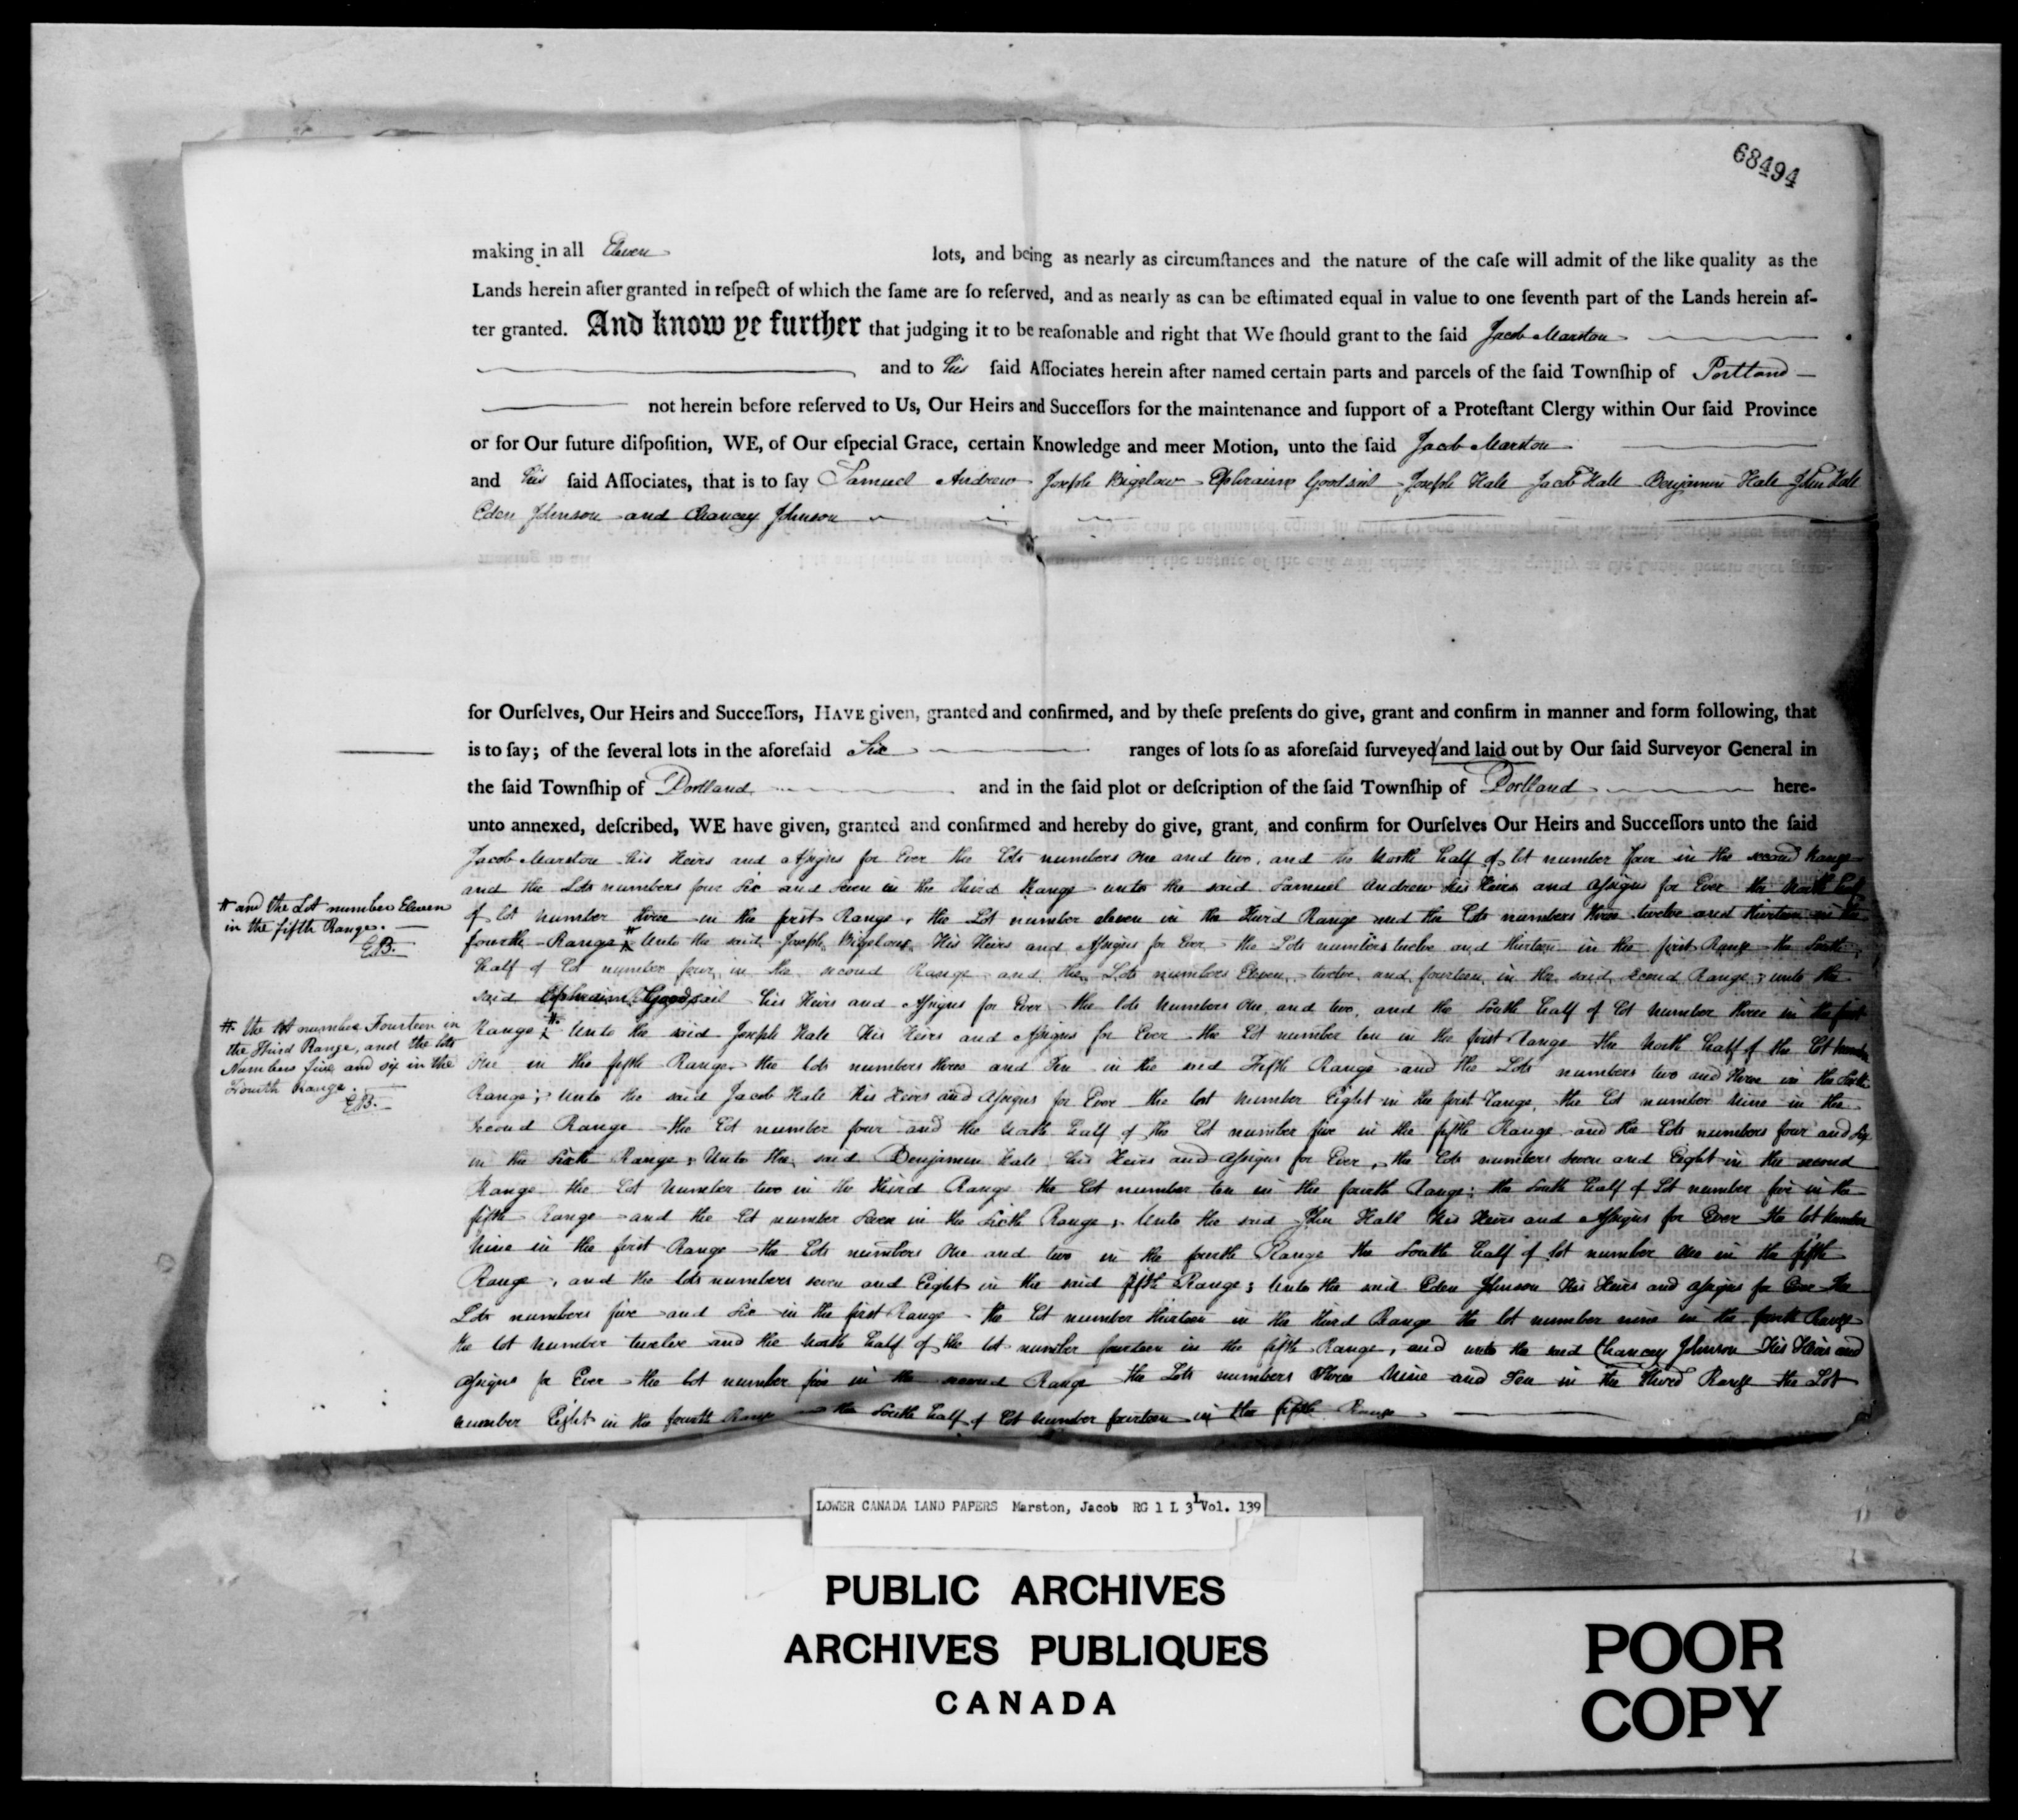 68494
making in all Eleven lots, and being as nearly as circumſtances and the nature of the caſe will admit of the like quality as the
Lands herein after granted in reſpect of which the ſame are ſo reſerved, and as nearly as can be eſtimated equal in value to one ſeventh part of the Lands herein af-
ter granted. And know ye further that judging it to be reaſonable and right that We ſhould grant to the ſaid Jacob Marston
and to his ſaid Aſſociates herein after named certain parts and parcels of the ſaid Townſhip of Portland
not herein before reſerved to Us, Our Heirs and Succeſſors for the maintenance and ſupport of a Proteſtant Clergy within Our ſaid Province
or for Our future diſpoſition, WE, of Our eſpecial Grace, certain Knowledge and meer Motion, unto the ſaid Jacob Marston
and his ſaid Aſſociates, that is to ſay Samuel Andrew Joseph Bigelow Ephraim Goodsail Joseph Hale Jacob Hale Benjamin Hale John Hall
Eden Johnson and Chancey Johnson
for Ourſelves, Our Heirs and Succeſſors, HAVE given, granted and confirmed, and by theſe preſents do give, grant and confirm in manner and form following, that
is to ſay; of the ſeveral lots in the aforeſaid Six ranges of lots ſo as aforeſaid ſurveyed and laid out by Our ſaid Surveyor General in
the ſaid Townſhip of Portland and in the ſaid plot or deſcription of the ſaid Townſhip of Portland here-
unto annexed, deſcribed, WE have given, granted and confirmed and hereby do give, grant, and confirm for Ourſelves Our Heirs and Succeſſors unto the ſaid
Jacob Marston his Heirs and Aſsigns for Ever the Lots numbers One and two, and the North half of lot number four in the second Range
and the Lots numbers four Six and Seven in the third Range unto the said Samuel Andrew his Heirs and Aſsigns for Ever the North half
of lot number three in the first Range, the Lot number eleven in the third Range and the Lots numbers three twelve and thirteen in the
fourth Range # Unto the said Joseph Bigelow His Heirs and Aſsigns for Ever the Lots numbers twelve and thirteen in the first Range the South
half of Lot number four in the second Range and the Lots numbers Eleven, twelve and fourteen in the said second Range; unto the
said Ephraim Goodsail his Heirs and Aſsigns for Ever the lots numbers One and two, and the South half of Lot number three in the first
Range # Unto the said Joseph Hale His Heirs and Aſsigns for Ever the Lot number ten in the first Range the North half of the Lot number
One in the fifth Range, the lots numbers three and Ten in the said Fifth Range and the Lots numbers two and three in the Sixth
Range; Unto the said Jacob Hale His Heirs and Aſsigns for Ever the lot number Eight in the first Range, the Lot number Nine in the
Second Range the Lot number four and the North half of the Lot number five in the fifth Range and the Lots numbers four and Six
in the Sixth Range; Unto the said Benjamin Hale his Heirs and Aſsigns for Ever, the Lots numbers Seven and Eight in the second
Range the Lot number two in the third Range the Lot number ten in the fourth Range; the South half of Lot number five in the
fifth Range and the Lot number Seven in the Sixth Range; Unto the said John Hall His Heirs and Aſsigns for Ever the lot number
Nine in the first Range the Lots numbers One and two in the fourth Range the South half of lot number One in the fifth
Range, and the lots numbers seven and Eight in the said fifth Range; Unto the said Eden Johnson His Heirs and Aſsigns for Ever the
Lots numbers five and Six in the first Range the Lot number thirteen in the third Range the lot number nine in the fourth Range
the lot number twelve and the North half of the lot number fourteen in the fifth Range, and unto the said Chancey Johnson His Heirs and
Aſsigns for Ever the lot number five in the second Range the Lots numbers Three Nine and Ten in the Third Range the Lot
number Eight in the fourth Range the South half of Lot number fourteen in the fifth Range
# and the Lot number Eleven
in the fifth Range.
# the lot number Fourteen in
the Third Range, and the lots
Numbers five and six in the
Fourth Range.
LOWER CANADA LAND PAPERS Marston, Jacob RG 1 L 3¹ Vol. 139
PUBLIC ARCHIVES
ARCHIVES PUBLIQUES
CANADA
POOR
COPY